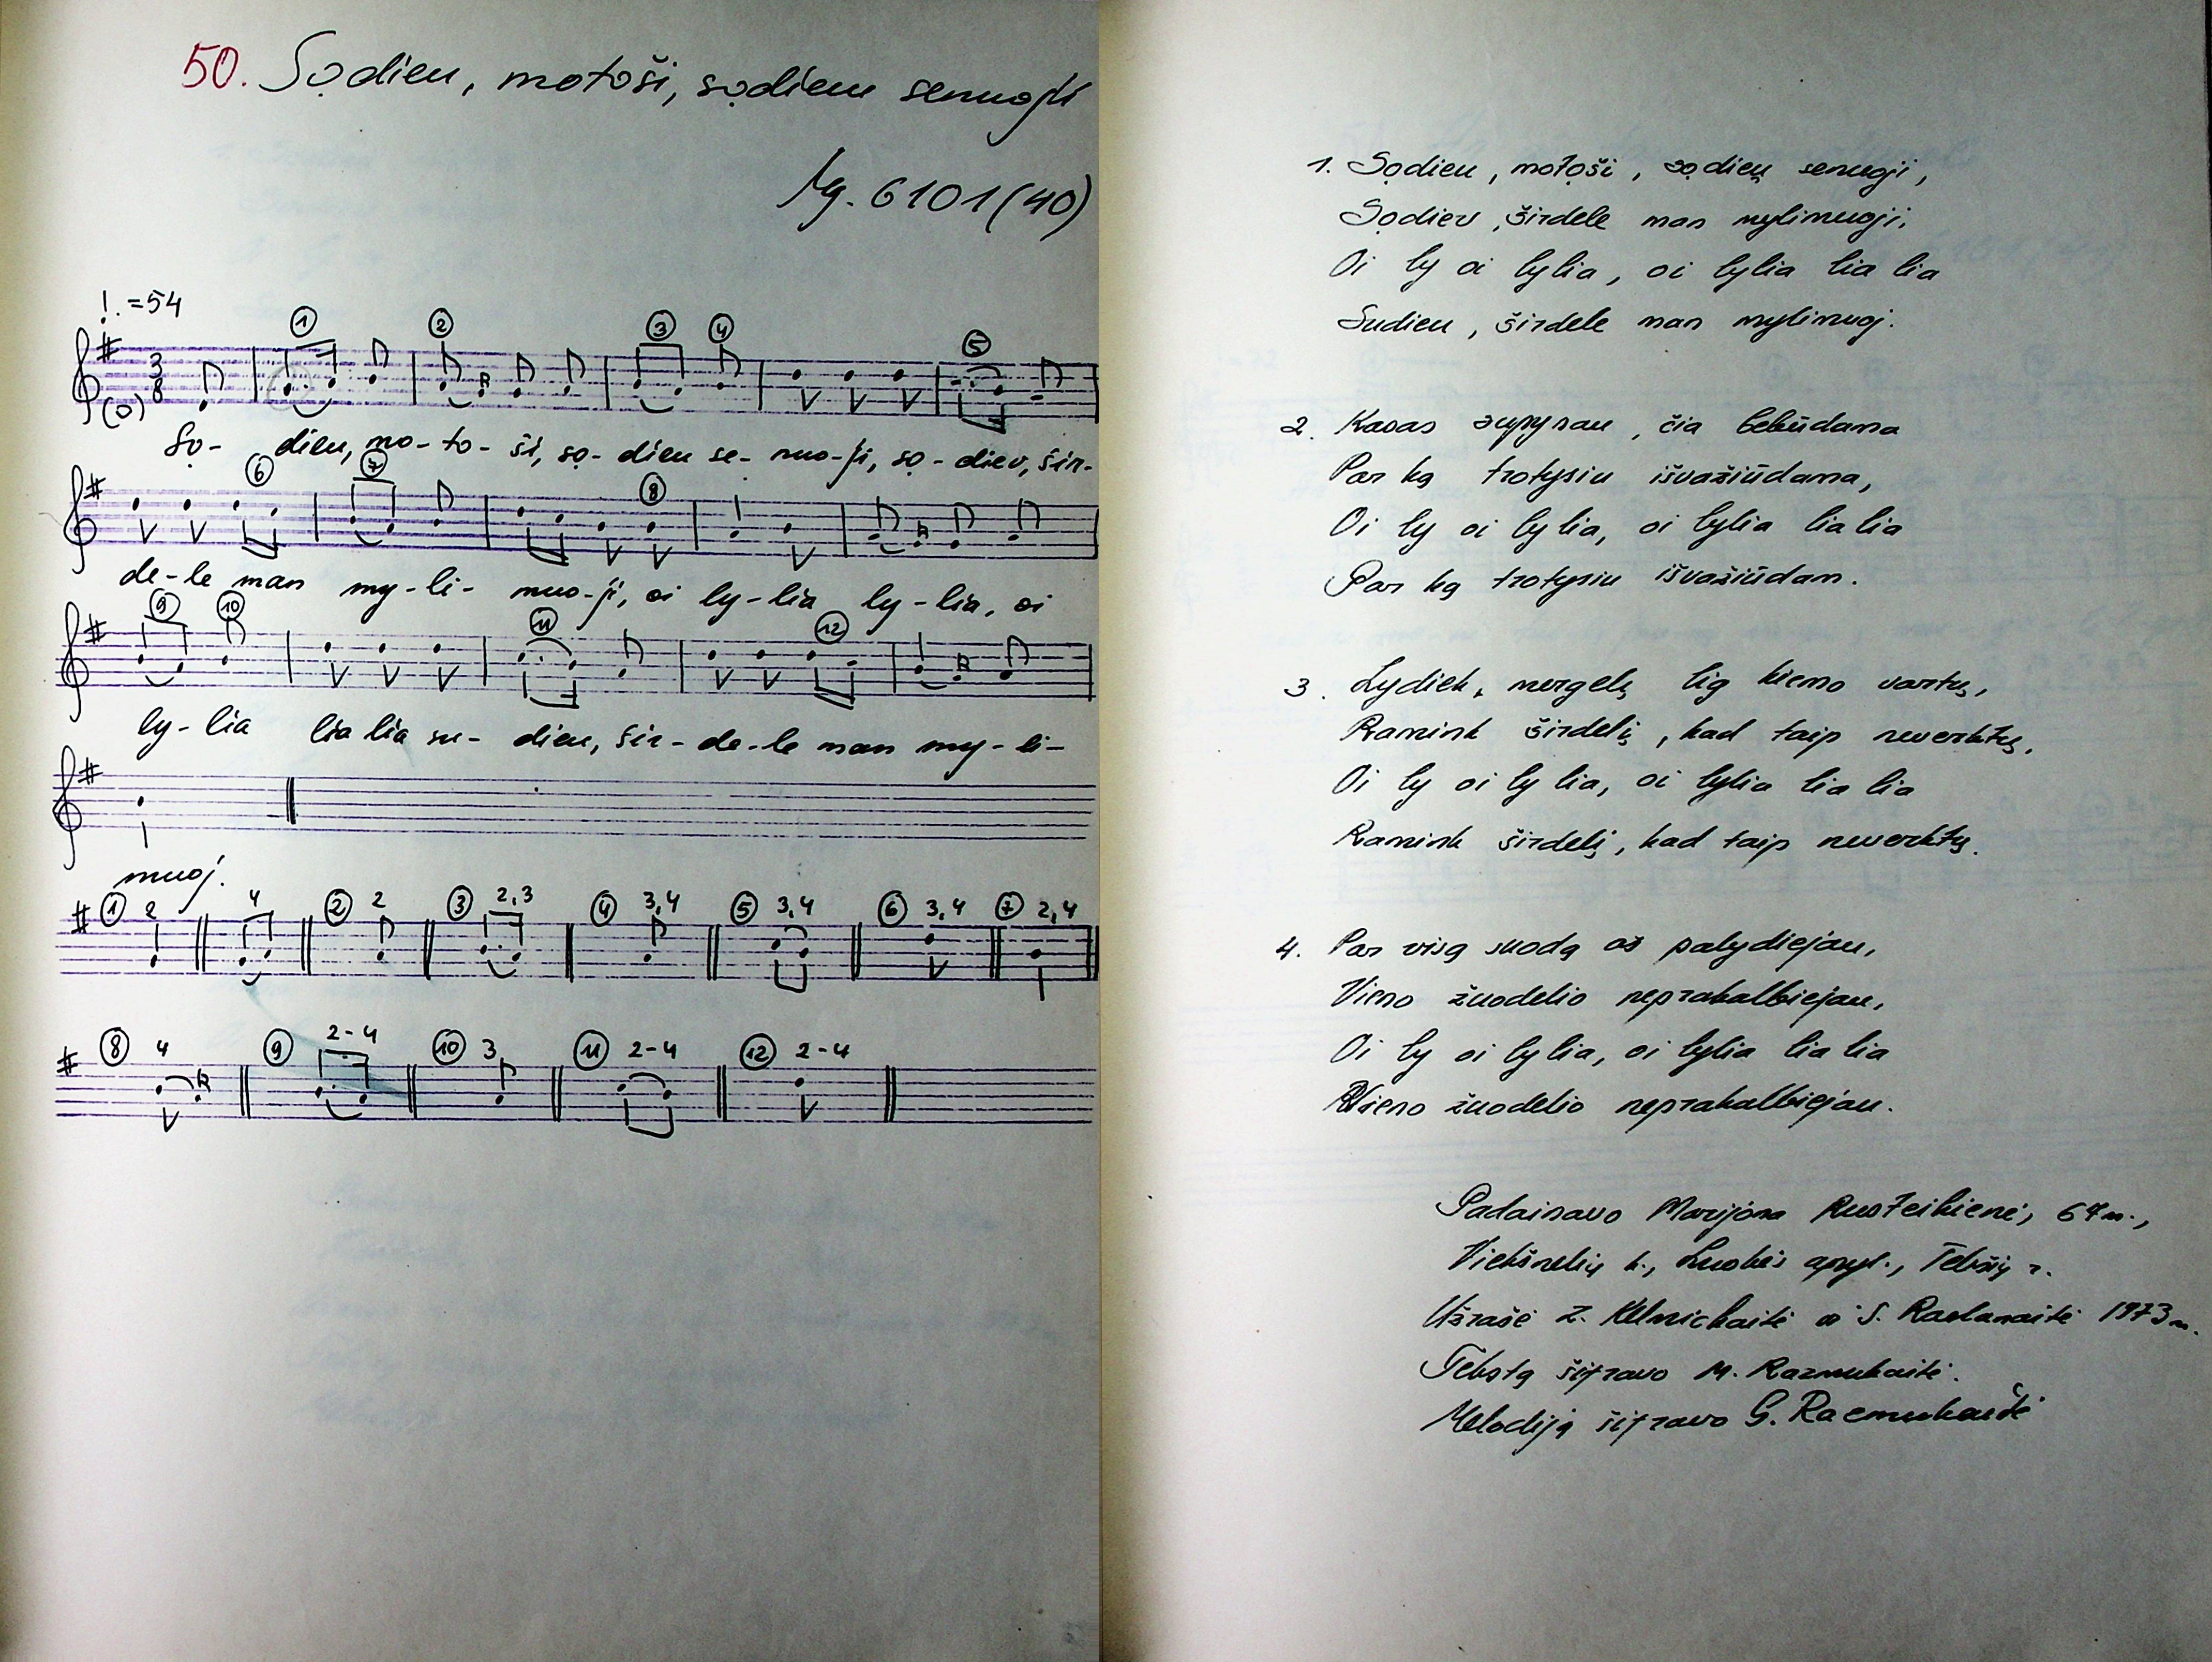 50. Sọdieu, motoši, sọdieu senuoji
Mg. 6101 (40)
♩. = 54
① ② ③ ④ ⑤
3
8
(o)
Sọ- dieu, mo-to-ši, sọ-dieu se-nuo-ji, sọ-diev, šir-
⑥ ⑦ ⑧
de-le man my-li-muo-ji, oi ly-lia ly-lia, oi
⑨ ⑩ ⑪ ⑫
ly-lia lia lia su-dieu, šir-de-le man my-li-
muoj.
① 2 4 ② 2 ③ 2,3 ④ 3,4 ⑤ 3,4 ⑥ 3,4 ⑦ 2,4
⑧ 4 ⑨ 2-4 ⑩ 3 ⑪ 2-4 ⑫ 2-4
1. Sọdieu, motọši, sọdieu senuoji,
Sọdiev, širdele man mylimuoji,
Oi ly oi lylia, oi lylia lia lia
Sudieu, širdele man mylimuoj.
2. Kasas supynau, čia bebūdama
Par ką trotysiu išvažiūdama,
Oi ly oi lylia, oi lylia lia lia
Par ką trotysiu išvažiūdam.
3. Lydiek, mergelę lig kiemo vartų,
Ramink širdelį, kad taip neverktų,
Oi ly oi lylia, oi lylia lia lia
Ramink širdelį, kad taip neverktų.
4. Par visą suodą aš palydiejau,
Vieno žuodelio neprakalbiejau,
Oi ly oi lylia, oi lylia lia lia
Vieno žuodelio neprakalbiejau.
Padainavo Marijona Rusteikienė, 67 m.,
Viekšnelių k., Luokės apyl., Telšių r.
Užrašė Z. Kelmickaitė ir S. 1973 m.
Tekstą šifravo M. Razmukaitė.
Melodiją šifravo G. Razmukaitė